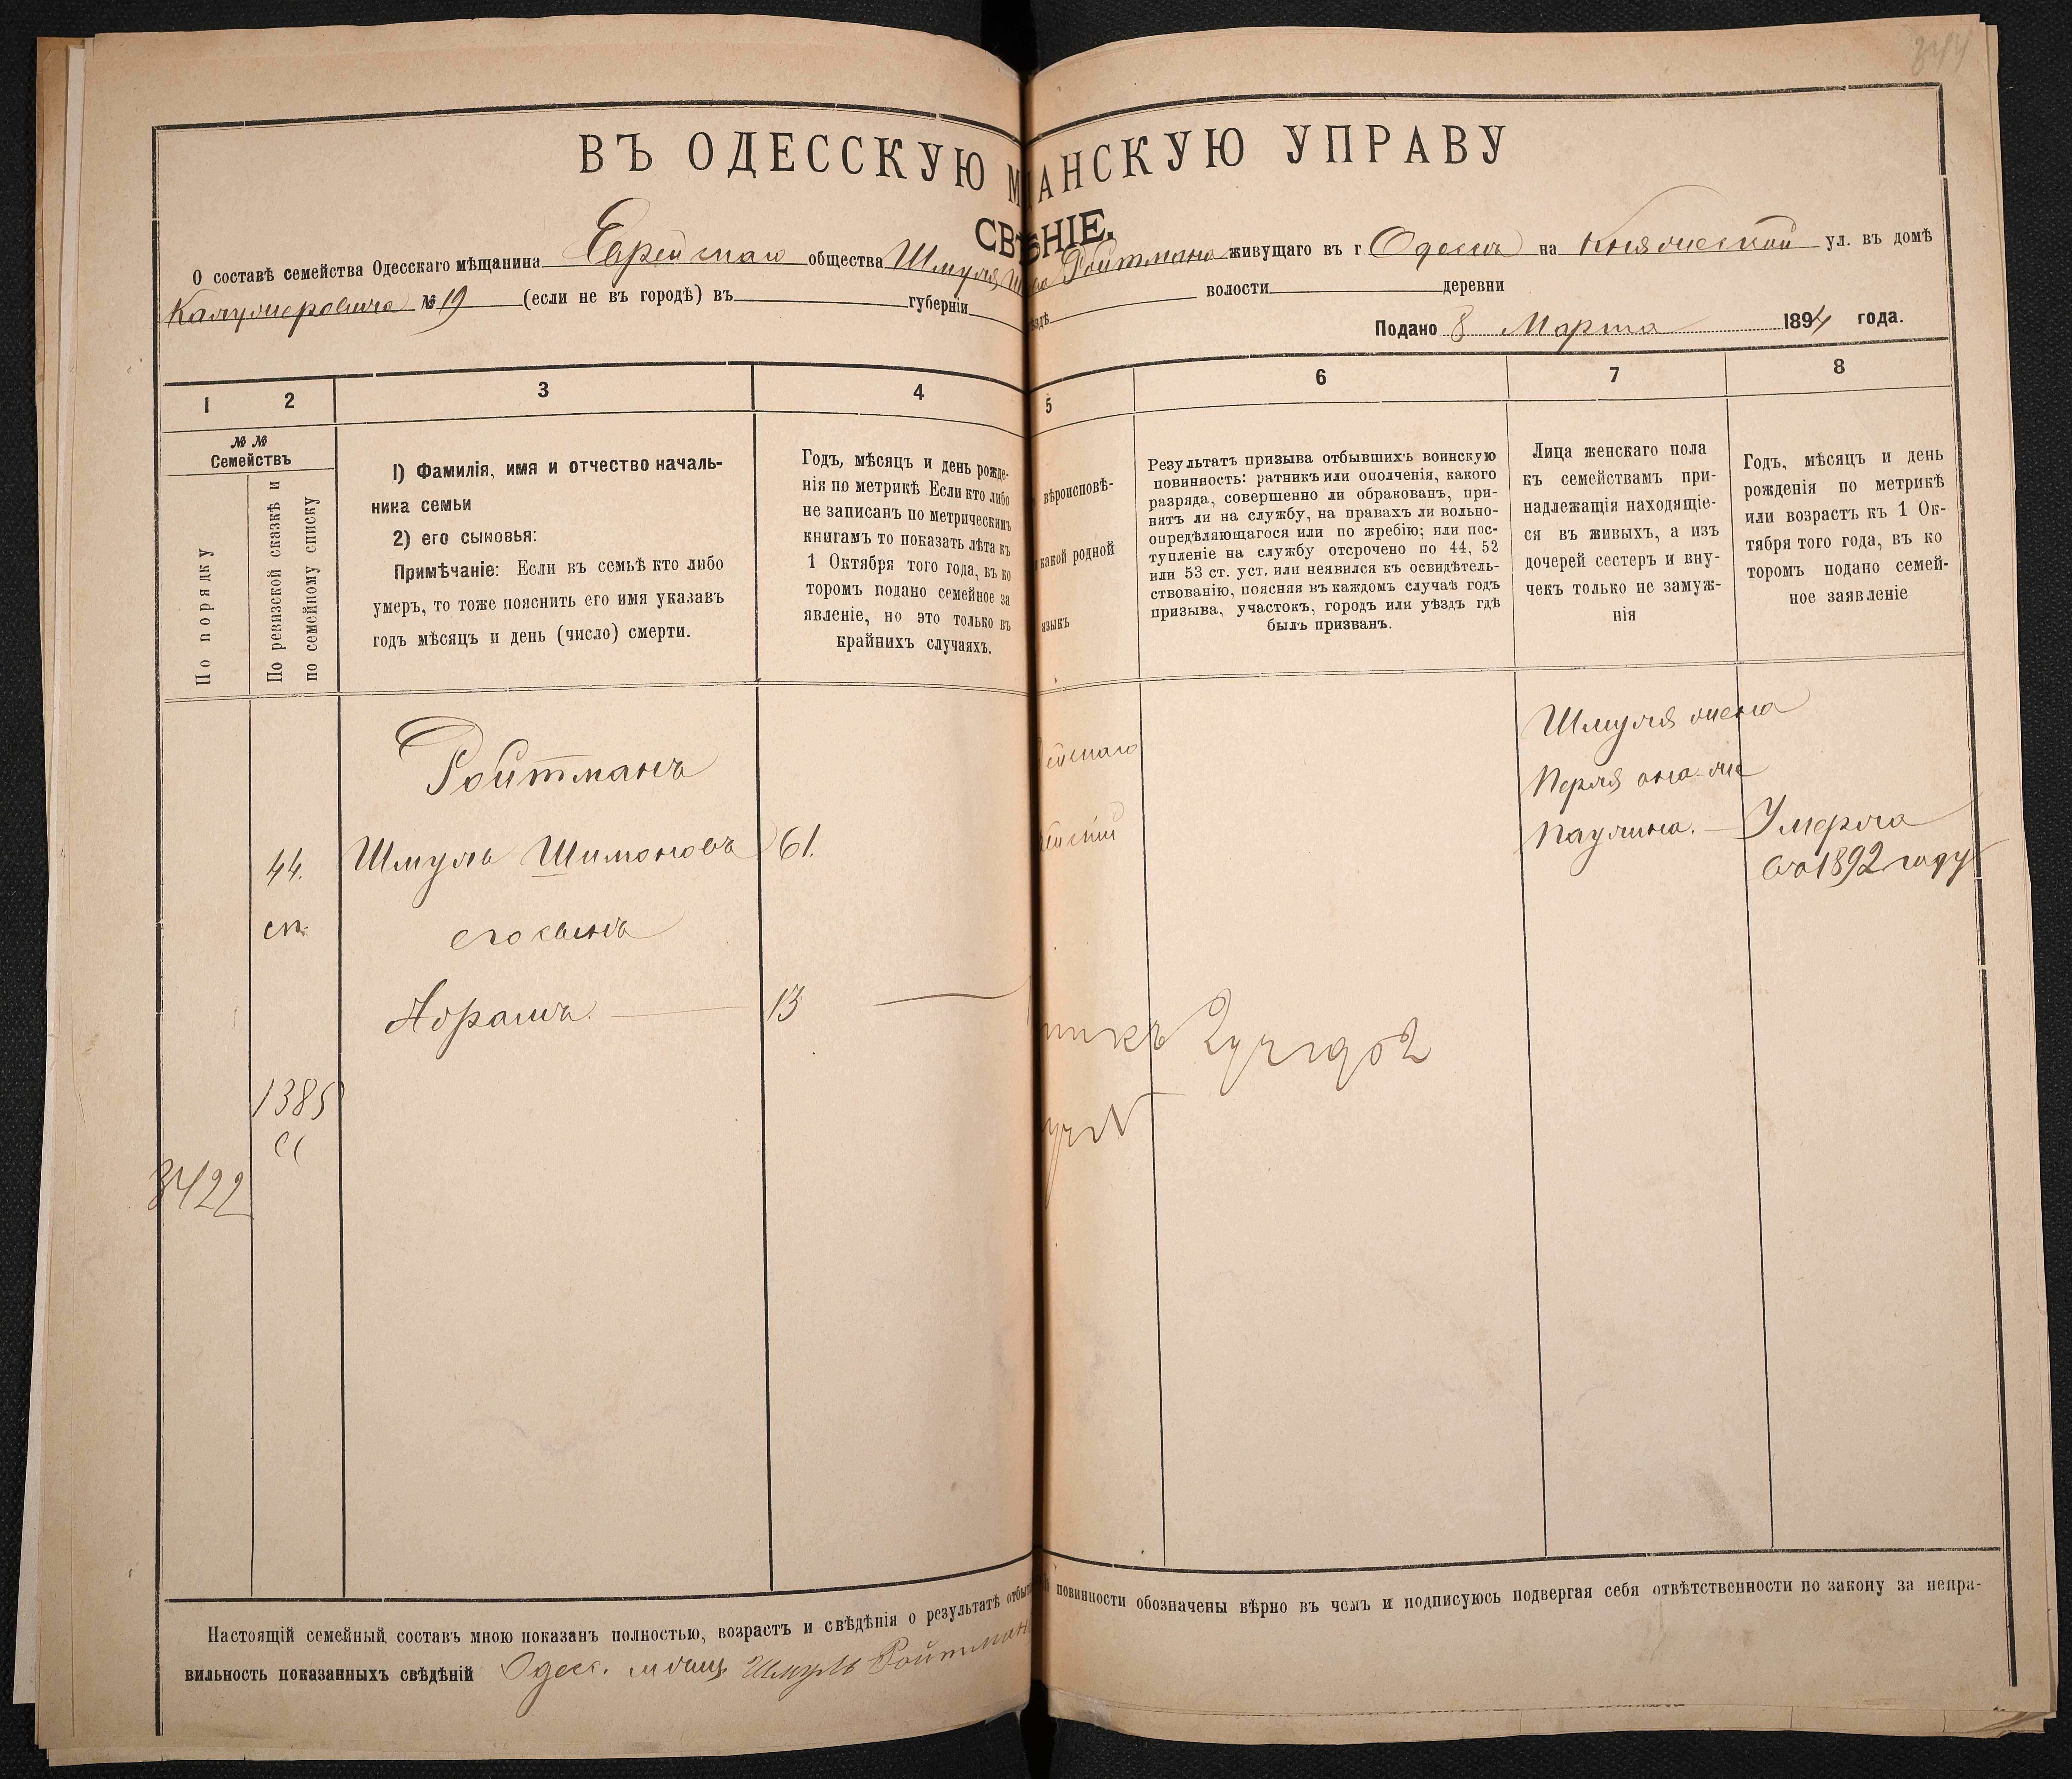 ВЪ ОДЕССКУЮ М АНСКУЮ УПРАВУ
СВѢ НІЕ.
О составѣ семейства Одесскаго мѣщанина Еврейскаго общества Шмуля Ройтмана живущаго въ г Одессѣ на Княжеской ул. въ домѣ
№ 19 (если не въ городѣ) въ губерніи ѣздѣ волости деревни
Подано 8 Марта 1894 года.
1 2 3 4 5 6 7 8
№ № Семействъ
По порядку
По ревизской сказкѣ и
по семейному списку
1) Фамилія, имя и отчество началь-
ника семьи
2) его сыновья:
Примѣчаніе: Если въ семьѣ кто либо
умеръ, то тоже пояснить его имя указавъ
годъ мѣсяцъ и день (число) смерти.
Годъ, мѣсяцъ и день рожде-
нія по метрикѣ Если кто либо
не записанъ по метрическимъ
книгамъ то показать лѣта къ
1 Октября того года, въ ко
торомъ подано семейное за
явленіе, но это только въ
крайнихъ случаяхъ.
вѣроисповѣ-
какой родной
языкъ
Результатъ призыва отбывшихъ воинскую
повинность: ратникъ или ополченія, какого
разряда, совершенно ли обракованъ, при-
нятъ ли на службу, на правахъ ли вольно-
опредѣляющагося или по жребію; или пос-
тупленіе на службу отсрочено по 44, 52
или 53 ст. уст. или неявился къ освидѣтель-
ствованію, поясняя въ каждомъ случаѣ годъ
призыва, участокъ, городъ или уѣздъ гдѣ
былъ призванъ.
Лица женскаго пола
къ семействамъ при-
надлежащія находящіе-
ся въ живыхъ, а изъ
дочерей сестеръ и вну-
чекъ только не замуж-
нія
Годъ, мѣсяцъ и день
рожденія по метрикѣ
или возрастъ къ 1 Ок-
тября того года, въ ко
торомъ подано семей-
ное заявленіе
Ройтманъ
44. Шмуль Шимоновъ 61.
сп.
его сынъ
Абрамъ. 13
1385
сс
3422
ейскаго
ейскій
Шмуля жена
Перля она-же
Паулина. — Умерла
въ 1892 году
Настоящій семейный составъ мною показанъ полностью, возрастъ и свѣдѣнія о результатѣ отбы повинности обозначены вѣрно въ чемъ и подписуюсь подвергая себя отвѣтственности по закону за непра-
вильность показанныхъ свѣдѣній Одесс. мѣщ. Шмуль Ройтман